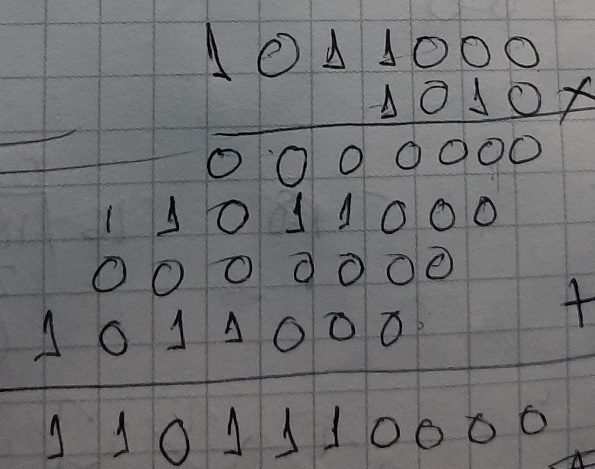 1011000
1010×
0000000
11011000
0000000
1011000 +
1101110000